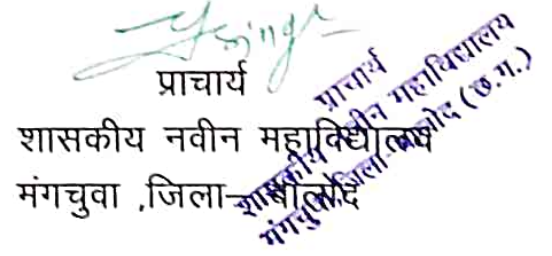 प्राचार्य
शासकीय नवीन महाविद्यालय
मंगचुवा ,जिला–बालोद
प्राचार्य
शासकीय नवीन महाविद्यालय
मंगचुवा, जिला-बालोद (छ.ग.)